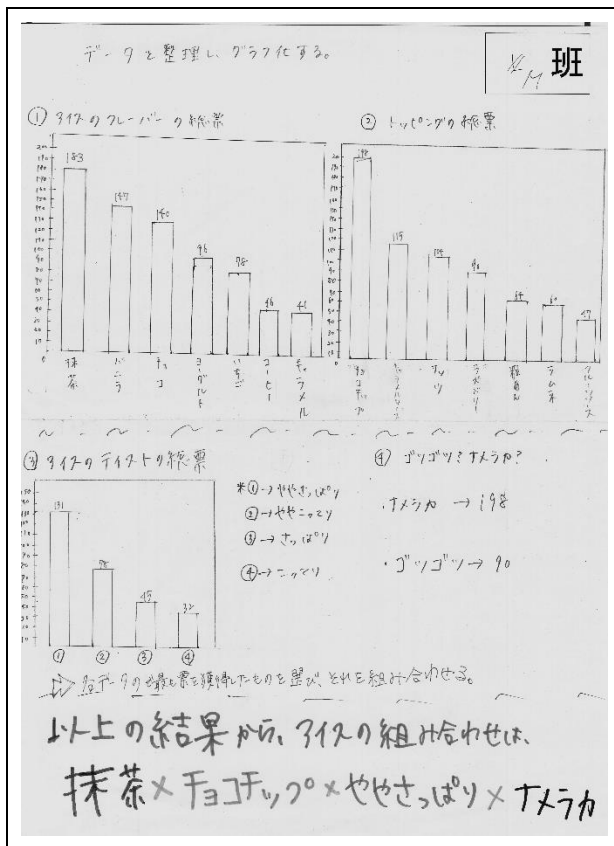 データを整理し、グラフ化する。
班
① アイスのフレーバーの総票
183
147
140
96
78
46
抹茶
バニラ
チョコ
ヨーグルト
いちご
コーヒー
キャラメル
② トッピングの総票
チョコチップ
ナッツ
ラズベリー
ラムネ
64
60
47
③ アイスのテイストの総票
131
45
32
① ② ③ ④
※①→ややさっぱり
②→ややこってり
③→さっぱり
④→こってり
④ ゴツゴツ?ナメラカ?
・ナメラカ→198
・ゴツゴツ→90
各データの最も票を獲得したものを選び、それを組み合わせる。
以上の結果から、アイスの組み合わせは、
抹茶×チョコチップ×ややさっぱり×ナメラカ